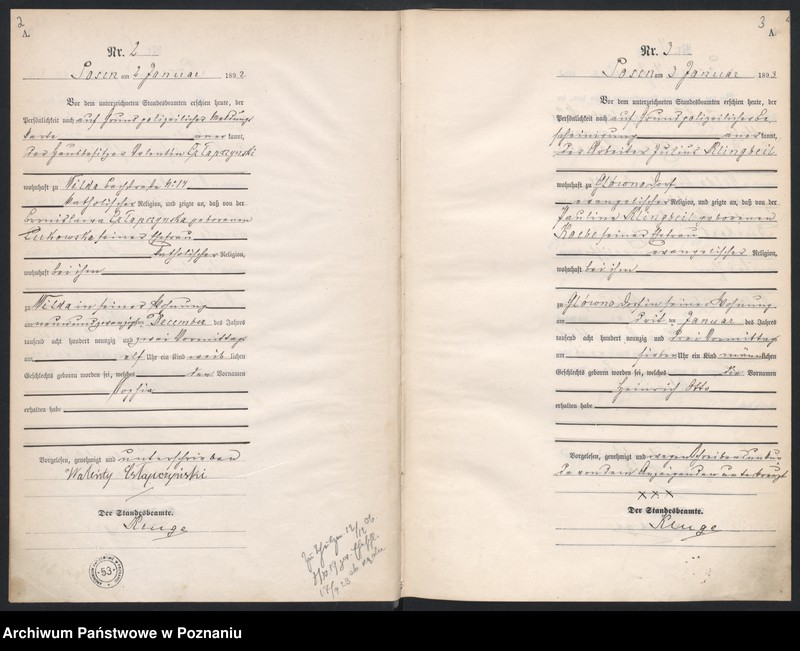 2
A.
Nr. 2
Posen am 2 Januar 1892
Vor dem unterzeichneten Standesbeamten erschien heute, der
Persönlichkeit nach auf Grund polizeilicher Meldungs
karte kannt,
der Hausbesitzer Valentin
wohnhaft zu Wilda Bachstraße No 14
katholischer Religion, und zeigte an, daß von der
geborenen
seiner Ehefrau
katholischer Religion,
wohnhaft bei ihm
zu Wilda in seiner Wohnung
am neunundzwanzigsten December des Jahres
tausend acht hundert neunzig und zwei Vormittag
um elf Uhr ein Kind weiblichen
Geschlechts geboren worden sei, welches den Vornamen
Sophia
erhalten habe
Vorgelesen, genehmigt und unterschrieben
Walenty
Der Standesbeamte.
53
3
A.
Nr. 3
Posen am 3 Januar 1893
Vor dem unterzeichneten Standesbeamten erschien heute, der
Persönlichkeit nach auf Grund polizeilicher Be
scheinigung kannt,
der Arbeiter Julius Klingbeil
wohnhaft zu Glówno Dorf
evangelischer Religion, und zeigte an, daß von der
Pauline Klingbeil geborenen
seiner Ehefrau
evangelischer Religion,
wohnhaft bei ihm
zu Glówno Dorf in seiner Wohnung
am Januar des Jahres
tausend acht hundert neunzig und drei Vormittag
um sieben Uhr ein Kind männlichen
Geschlechts geboren worden sei, welches die Vornamen
Heinrich Otto
erhalten habe
Vorgelesen, genehmigt und wegen Schreibensunkun
de von dem Anzeigenden unterkreuzt
xxx
Der Standesbeamte.
Archiwum Państwowe w Poznaniu